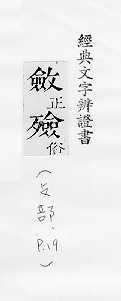 經典文字辨證書
斂正
殮俗
(攴部. P.19)